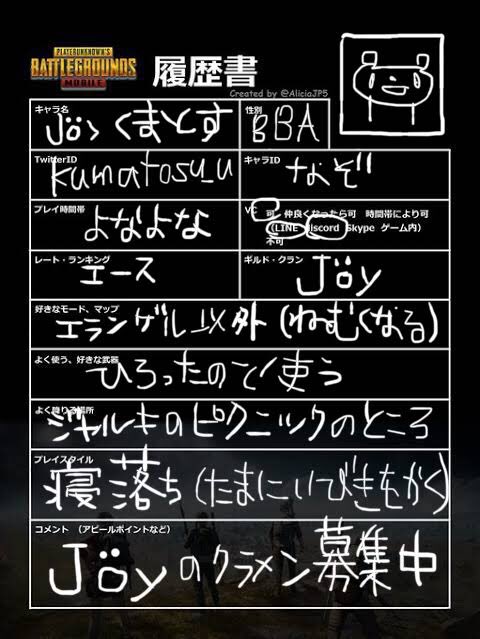 PLAYERUNKNOWN'S
BATTLEGROUNDS
MOBILE
履歴書
Created by @AliciaJP5
キャラ名
Jöyくまとす
性別
BBA
TwitterID
kumatosu_u
キャラID
なぞ
プレイ時間帯
よなよな
VC
可 仲良くなったら可 時間帯により可
(LINE Discord Skype ゲーム内)
不可
レート・ランキング
エース
ギルド・クラン
Jöy
好きなモード、マップ
エランゲル以外(ねむくなる)
よく使う、好きな武器
ひろったのて使う
よく降りる場所
ジャルキのピクニックのところ
プレイスタイル
寝落ち(たまにいびきをかく)
コメント (アピールポイントなど)
Jöyのクラメン募集中